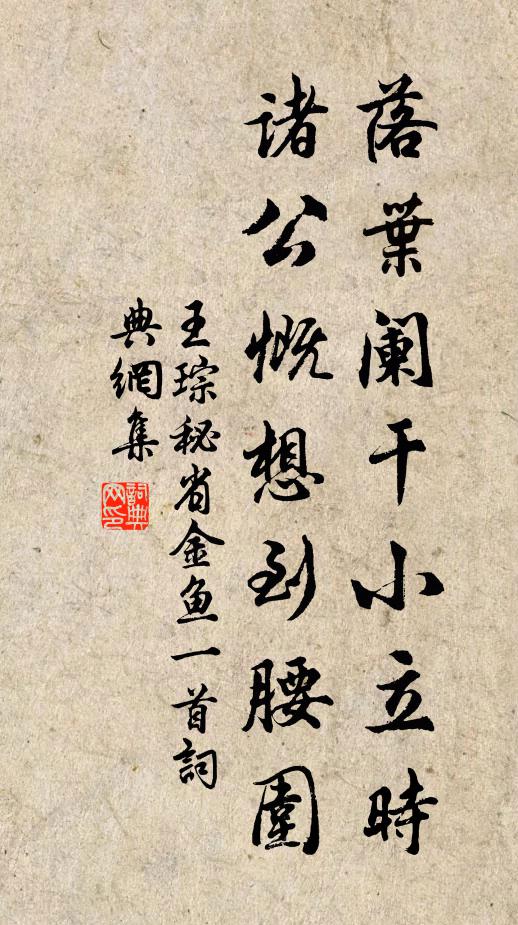 落葉阑干小立時
诸公慨想到腰圍
王琮秘省金鱼一首詞
典網集
詞典
网印